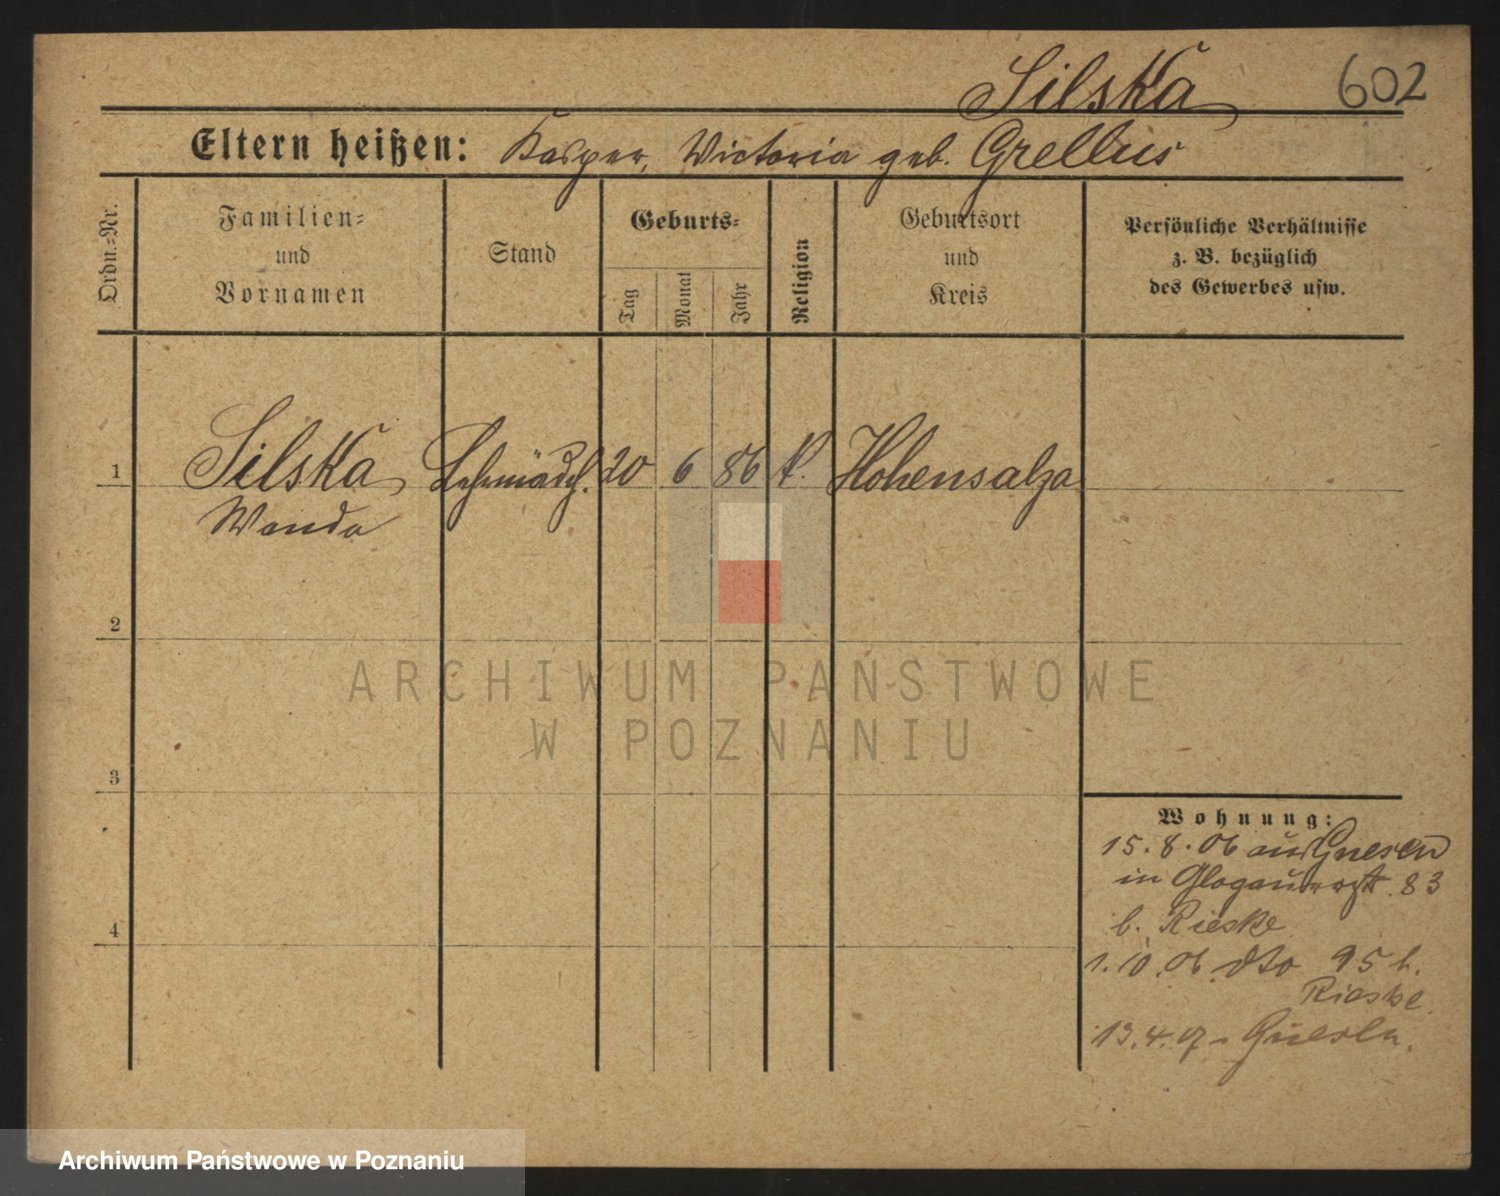 Silska
602
Eltern heißen: Kasper, Victoria geb. Grellus
Ordn.=Nr.
Familien=
und
Vornamen
Stand
Geburts=
Tag
Monat
Jahr
Religion
Geburtsort
und
Kreis
Persönliche Verhältnisse
z. B. bezüglich
des Gewerbes usw.
1 Silska Lehrmädch. 20 6 86 k. Hohensalza
Wanda
2
3
4
Wohnung:
15.8.06 aus Gnesen
in Glogauerstr. 83
b. Rieske
1.10.06. dto 95 b.
Rieske
13.4.07 - Gnesen.
ARCHIWUM PAŃSTWOWE
W POZNANIU
Archiwum Państwowe w Poznaniu